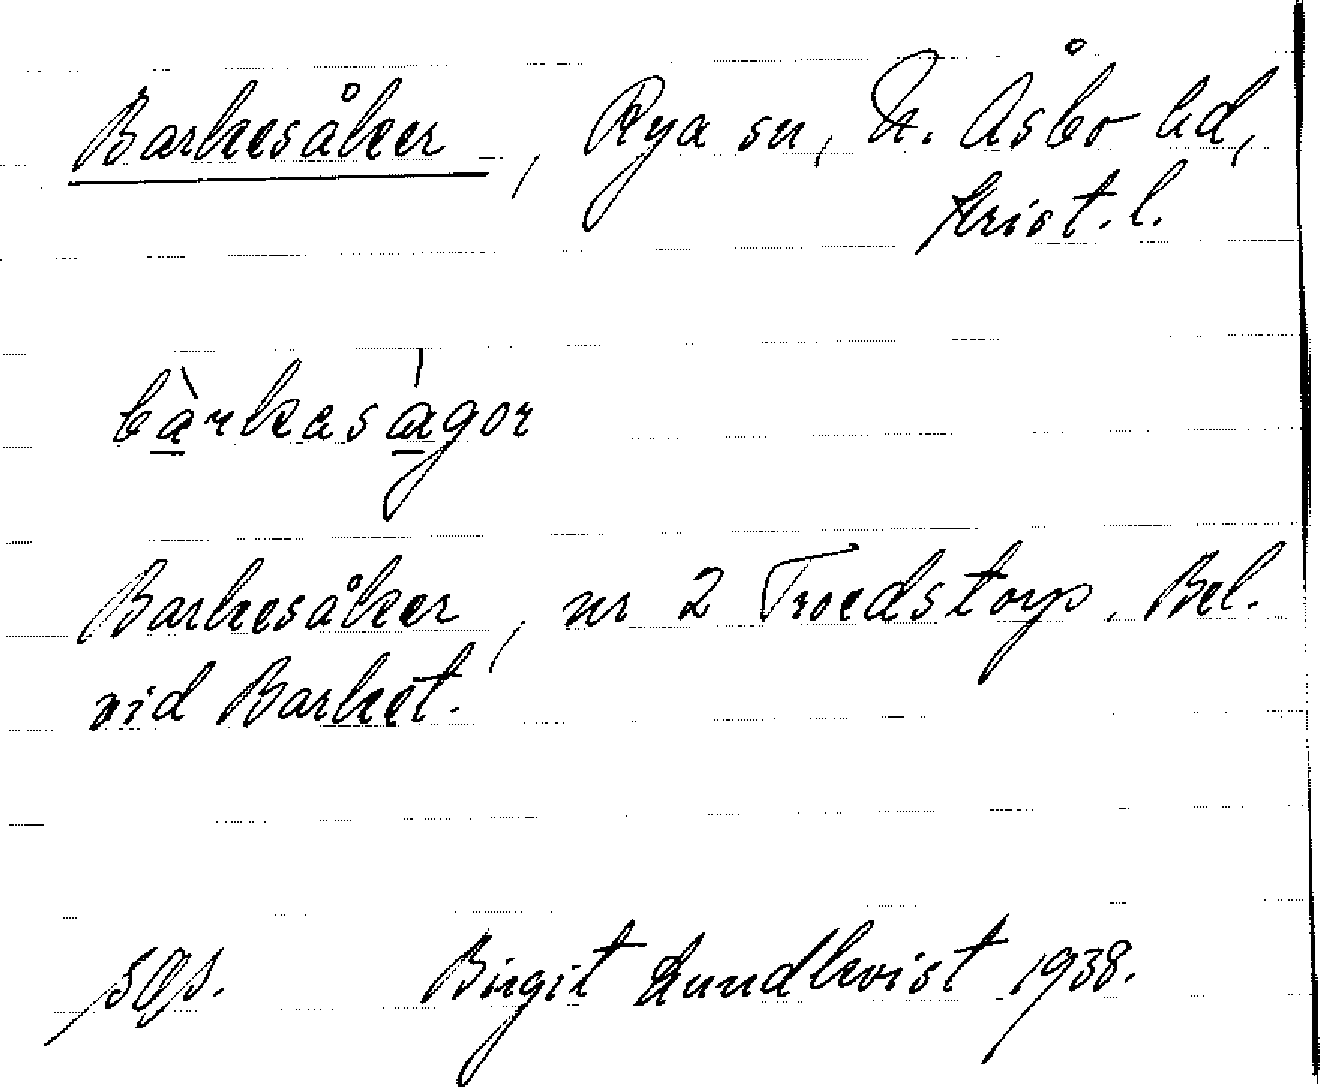 Barkesåker, Rya sn, N. Åsbo hd,
Krist. l.
bàrkasagor
Barkesåker, nr 2 Troedstorp. Bel.
vid Barket.
Birgit Lundkvist 1938.